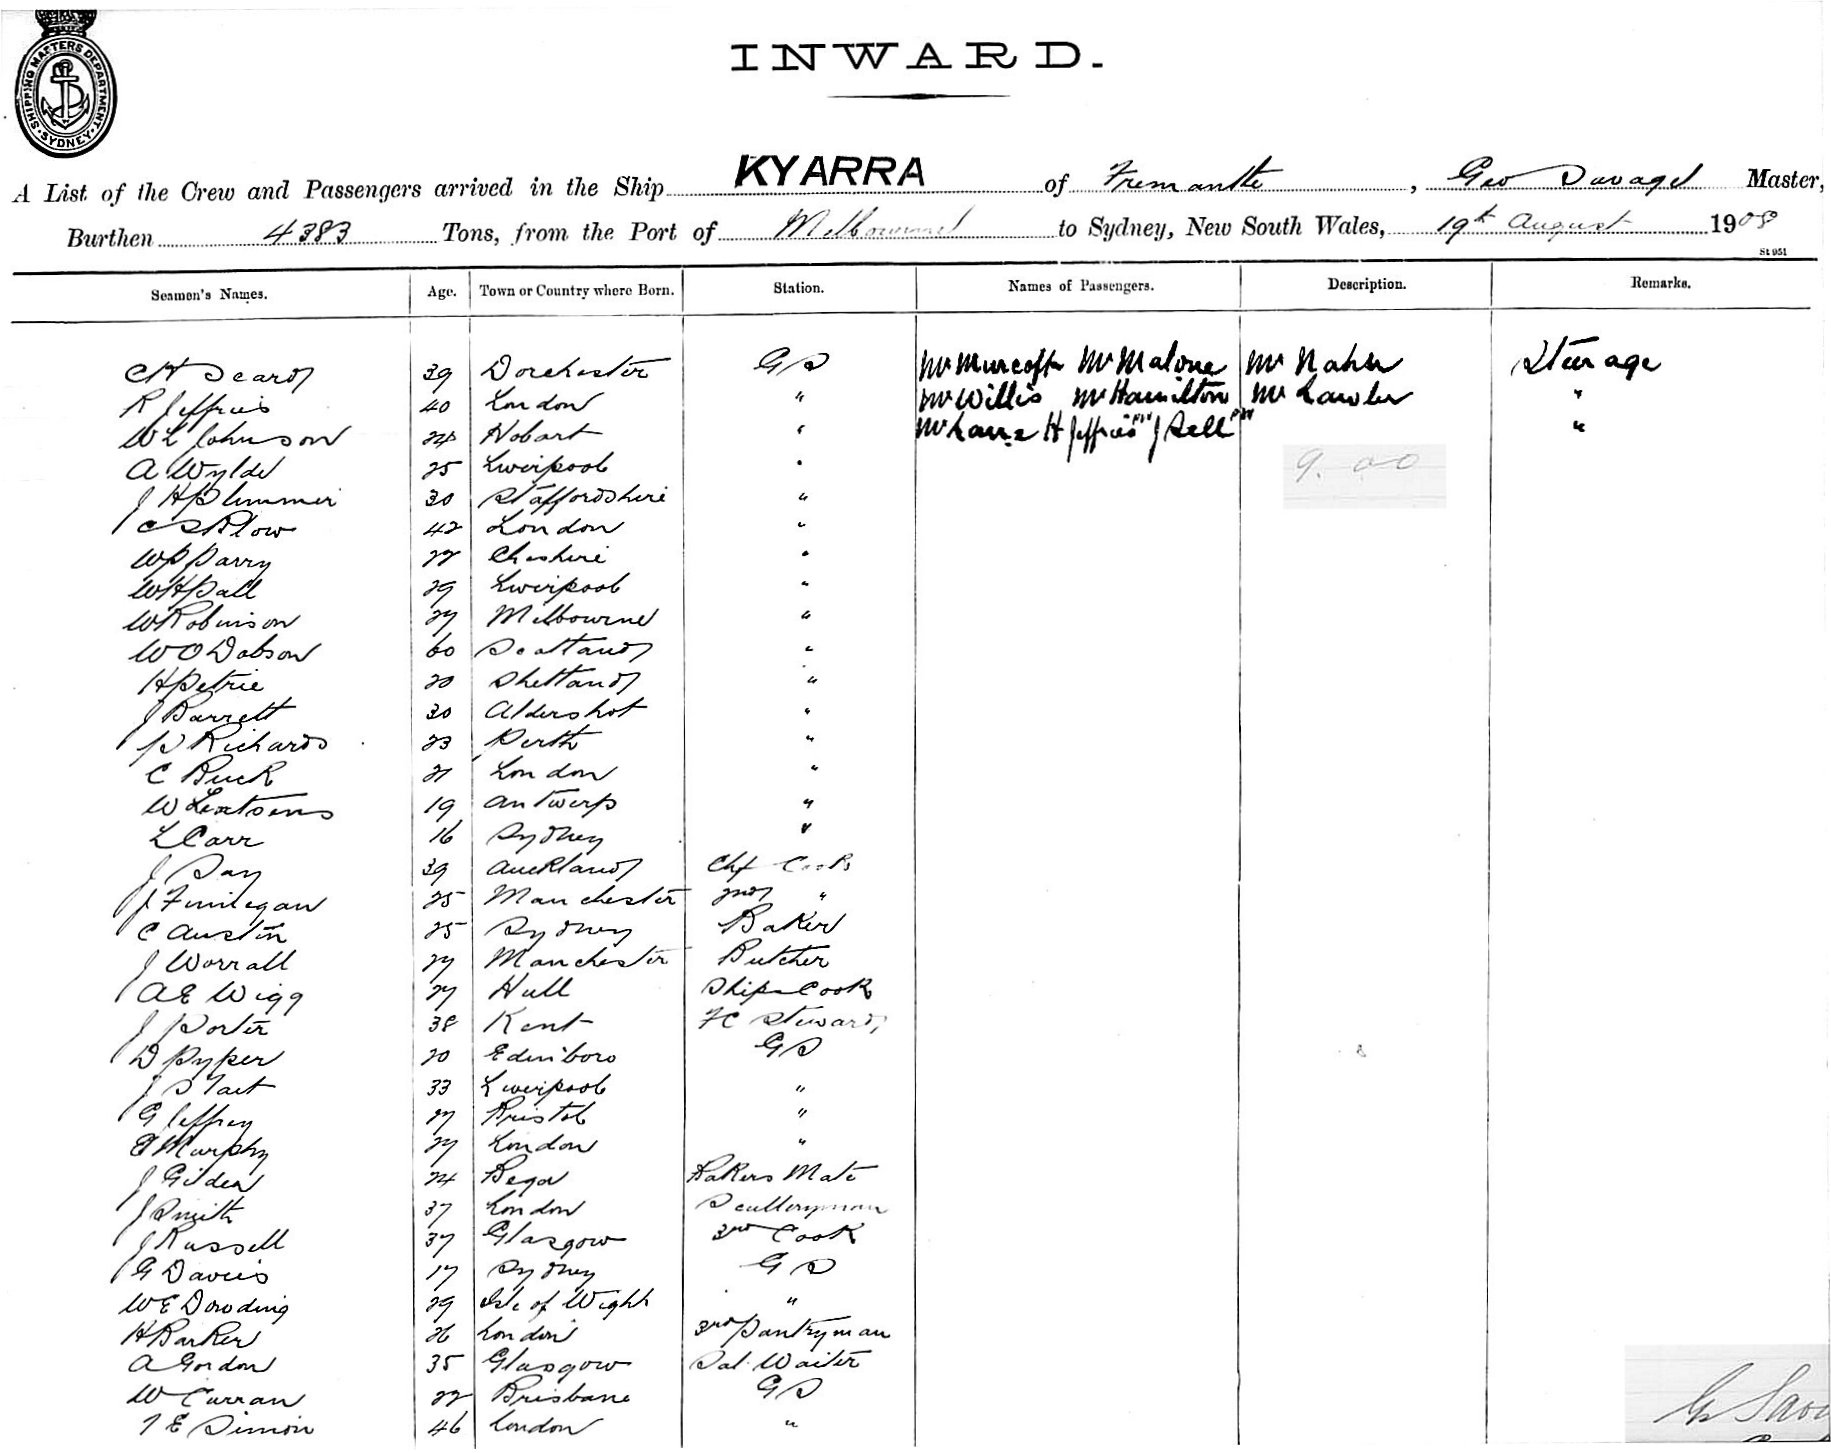 SHIPPING MASTERS DEPARTMENT · SYDNEY ·
INWARD.
A List of the Crew and Passengers arrived in the Ship KYARRA of Fremantle, Geo Savage Master,
Burthen 4383 Tons, from the Port of Melbourne to Sydney, New South Wales, 19th August 1908
St 951
Seamen's Names. Age. Town or Country where Born. Station. Names of Passengers. Description. Remarks.
C H 39 Dorchester G S Mr Mr Malone Mr Steerage
R Jeffries 40 London " Mr Willis Mr Hamilton Mr Lawler "
W L Johnson 24 Hobart " Mr Lane H Jeffries "" J Sell "" "
A Wylde 25 Liverpool "
9.00
J H Plummer 30 Staffordshire "
C S Blow 42 London "
W P Parry 22 Cheshire "
W H Pall 29 Liverpool "
W Robinson 27 Melbourne "
W O Dobson 60 Scotland "
H Petrie 20 Shetland "
J Barrett 30 Aldershot "
P Richards 23 Perth "
C Buck 21 London "
W 19 Antwerp "
L Carr 16 Sydney "
J Day 39 Auckland Chf Cook
J Finnegan 25 Manchester 2nd "
C Austin 25 Sydney Baker
J Worrall 27 Manchester Butcher
A E Wigg 27 Hull Ships Cook
J Porter 38 Kent FC Steward
D Pyper 20 Edinboro G S
J S Tait 33 Liverpool "
G Jeffrey 27 Bristol "
E Murphy 27 London "
J Gilden 24 Bega Bakers Mate
J Smith 37 London Sculleryman
J Russell 37 Glasgow 3rd Cook
G Davies 17 Sydney G S
W E Dowding 29 Isle of Wight "
H Barker 26 London 3rd Pantryman
A Gordon 35 Glasgow Sal. Waiter
W Curran 22 Brisbane G S
T E Simon 46 London "
G Sav